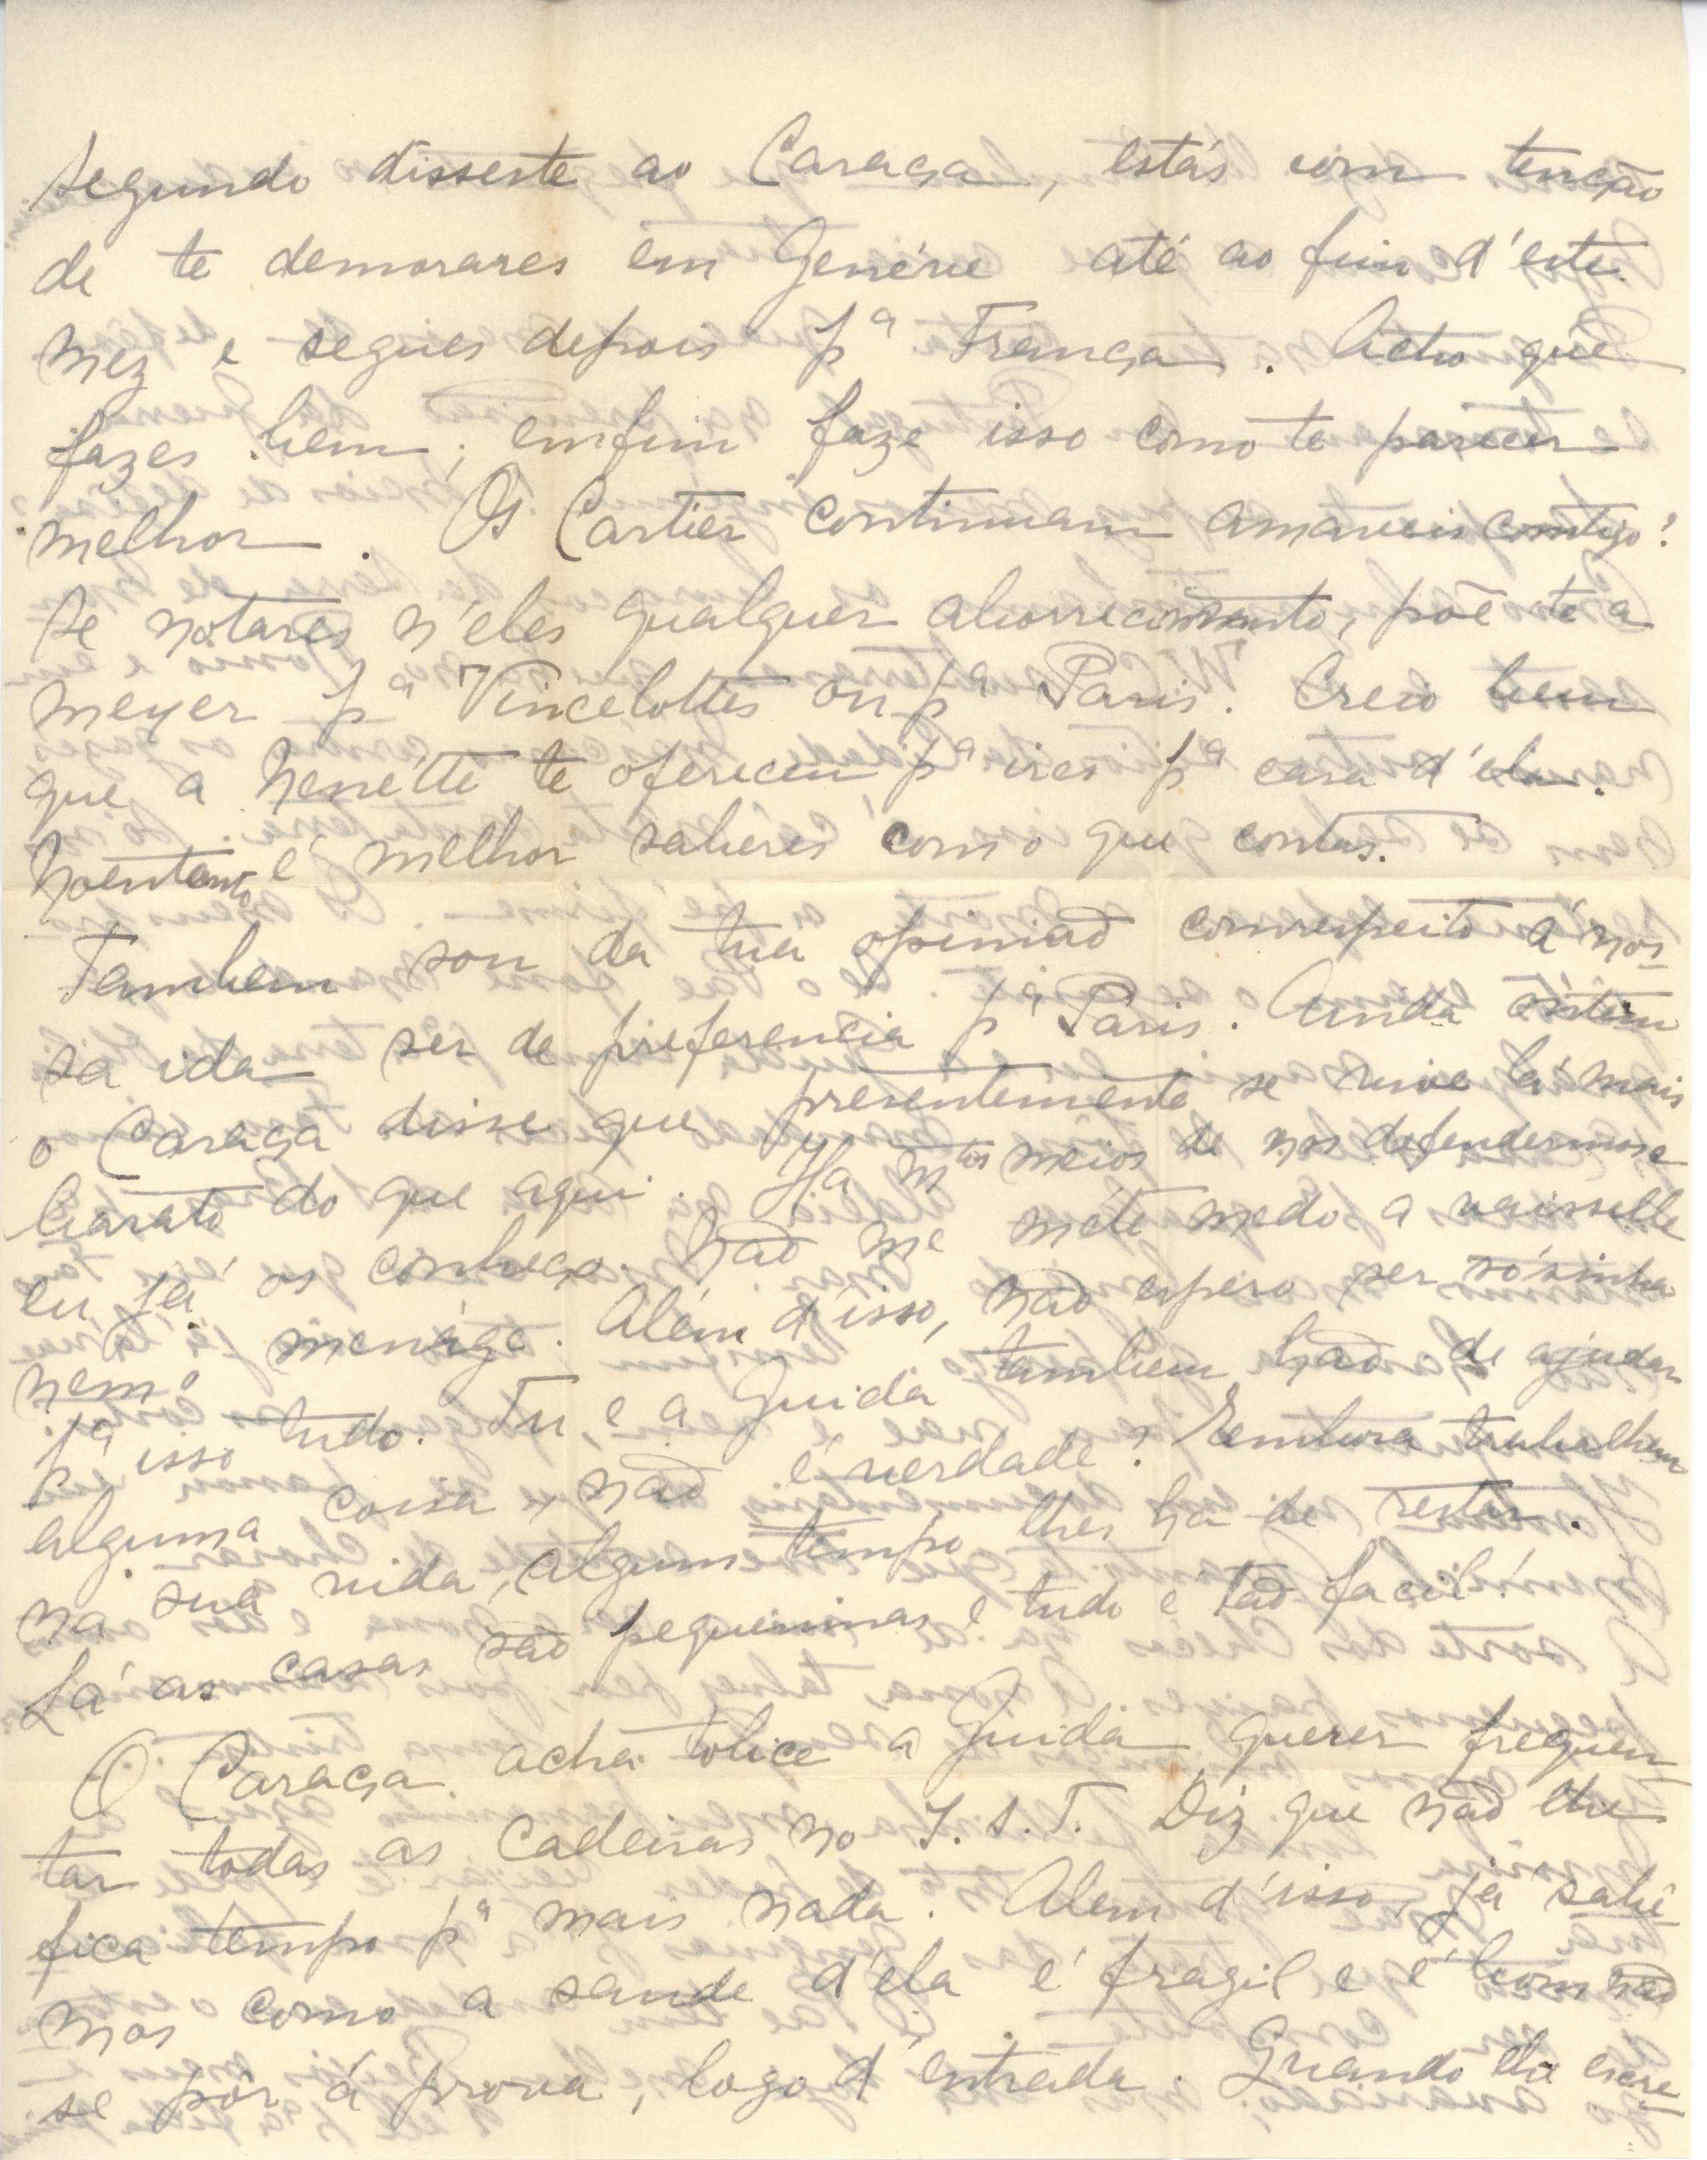 segundo disseste ao Caraça, estás com tenção
de te demorares em Genéve até ao fim d'este
mez e segues depois pª França. Acho que
fazes bem; emfim faze isso como te parecer
melhor. Os Cartier continuam amaveis comtigo?
Se notares n'eles qualquer aborrecimento, põe-te a
mexer pª Vincelottes ou pª Paris. Creio bem
que a Nenétte te ofereceu pª ires pª casa d'ela.
Noentanto é melhor saberes com o que contas.
Tambem sou da tua opinião com respeito á nos-
sa ida ser de preferencia pª Paris. Ainda ôntem
o Caraça disse que presentemente se vive lá mais
barato do que aqui. Ha mtos meios de nos defendermos e
eu já os conheço. Não me méte medo a vaisselle
nem o menáge. Além d'isso, não espero ser sósinha
pª isso tudo. Tu, e a Guida tambem hão de ajudar
alguma coisa, não é verdade? Embora trabalhem
na sua vida, algum tempo lhes ha-de restar.
Lá as casas são pequeninas e tudo é tão facil!
O Caraça acha tolice a Guida querer frequen-
tar todas as cadeiras no I.S.T. Diz que não lhe
fica tempo pª mais nada. Além d'isso, já sabê-
mos como a saude d'ela é fragil e é bom não
se pôr á prova, logo d'entrada. Quando ela escre-